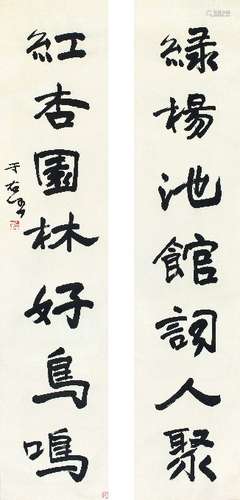 綠楊池館詞人聚
紅杏園林好鳥鳴
于右任